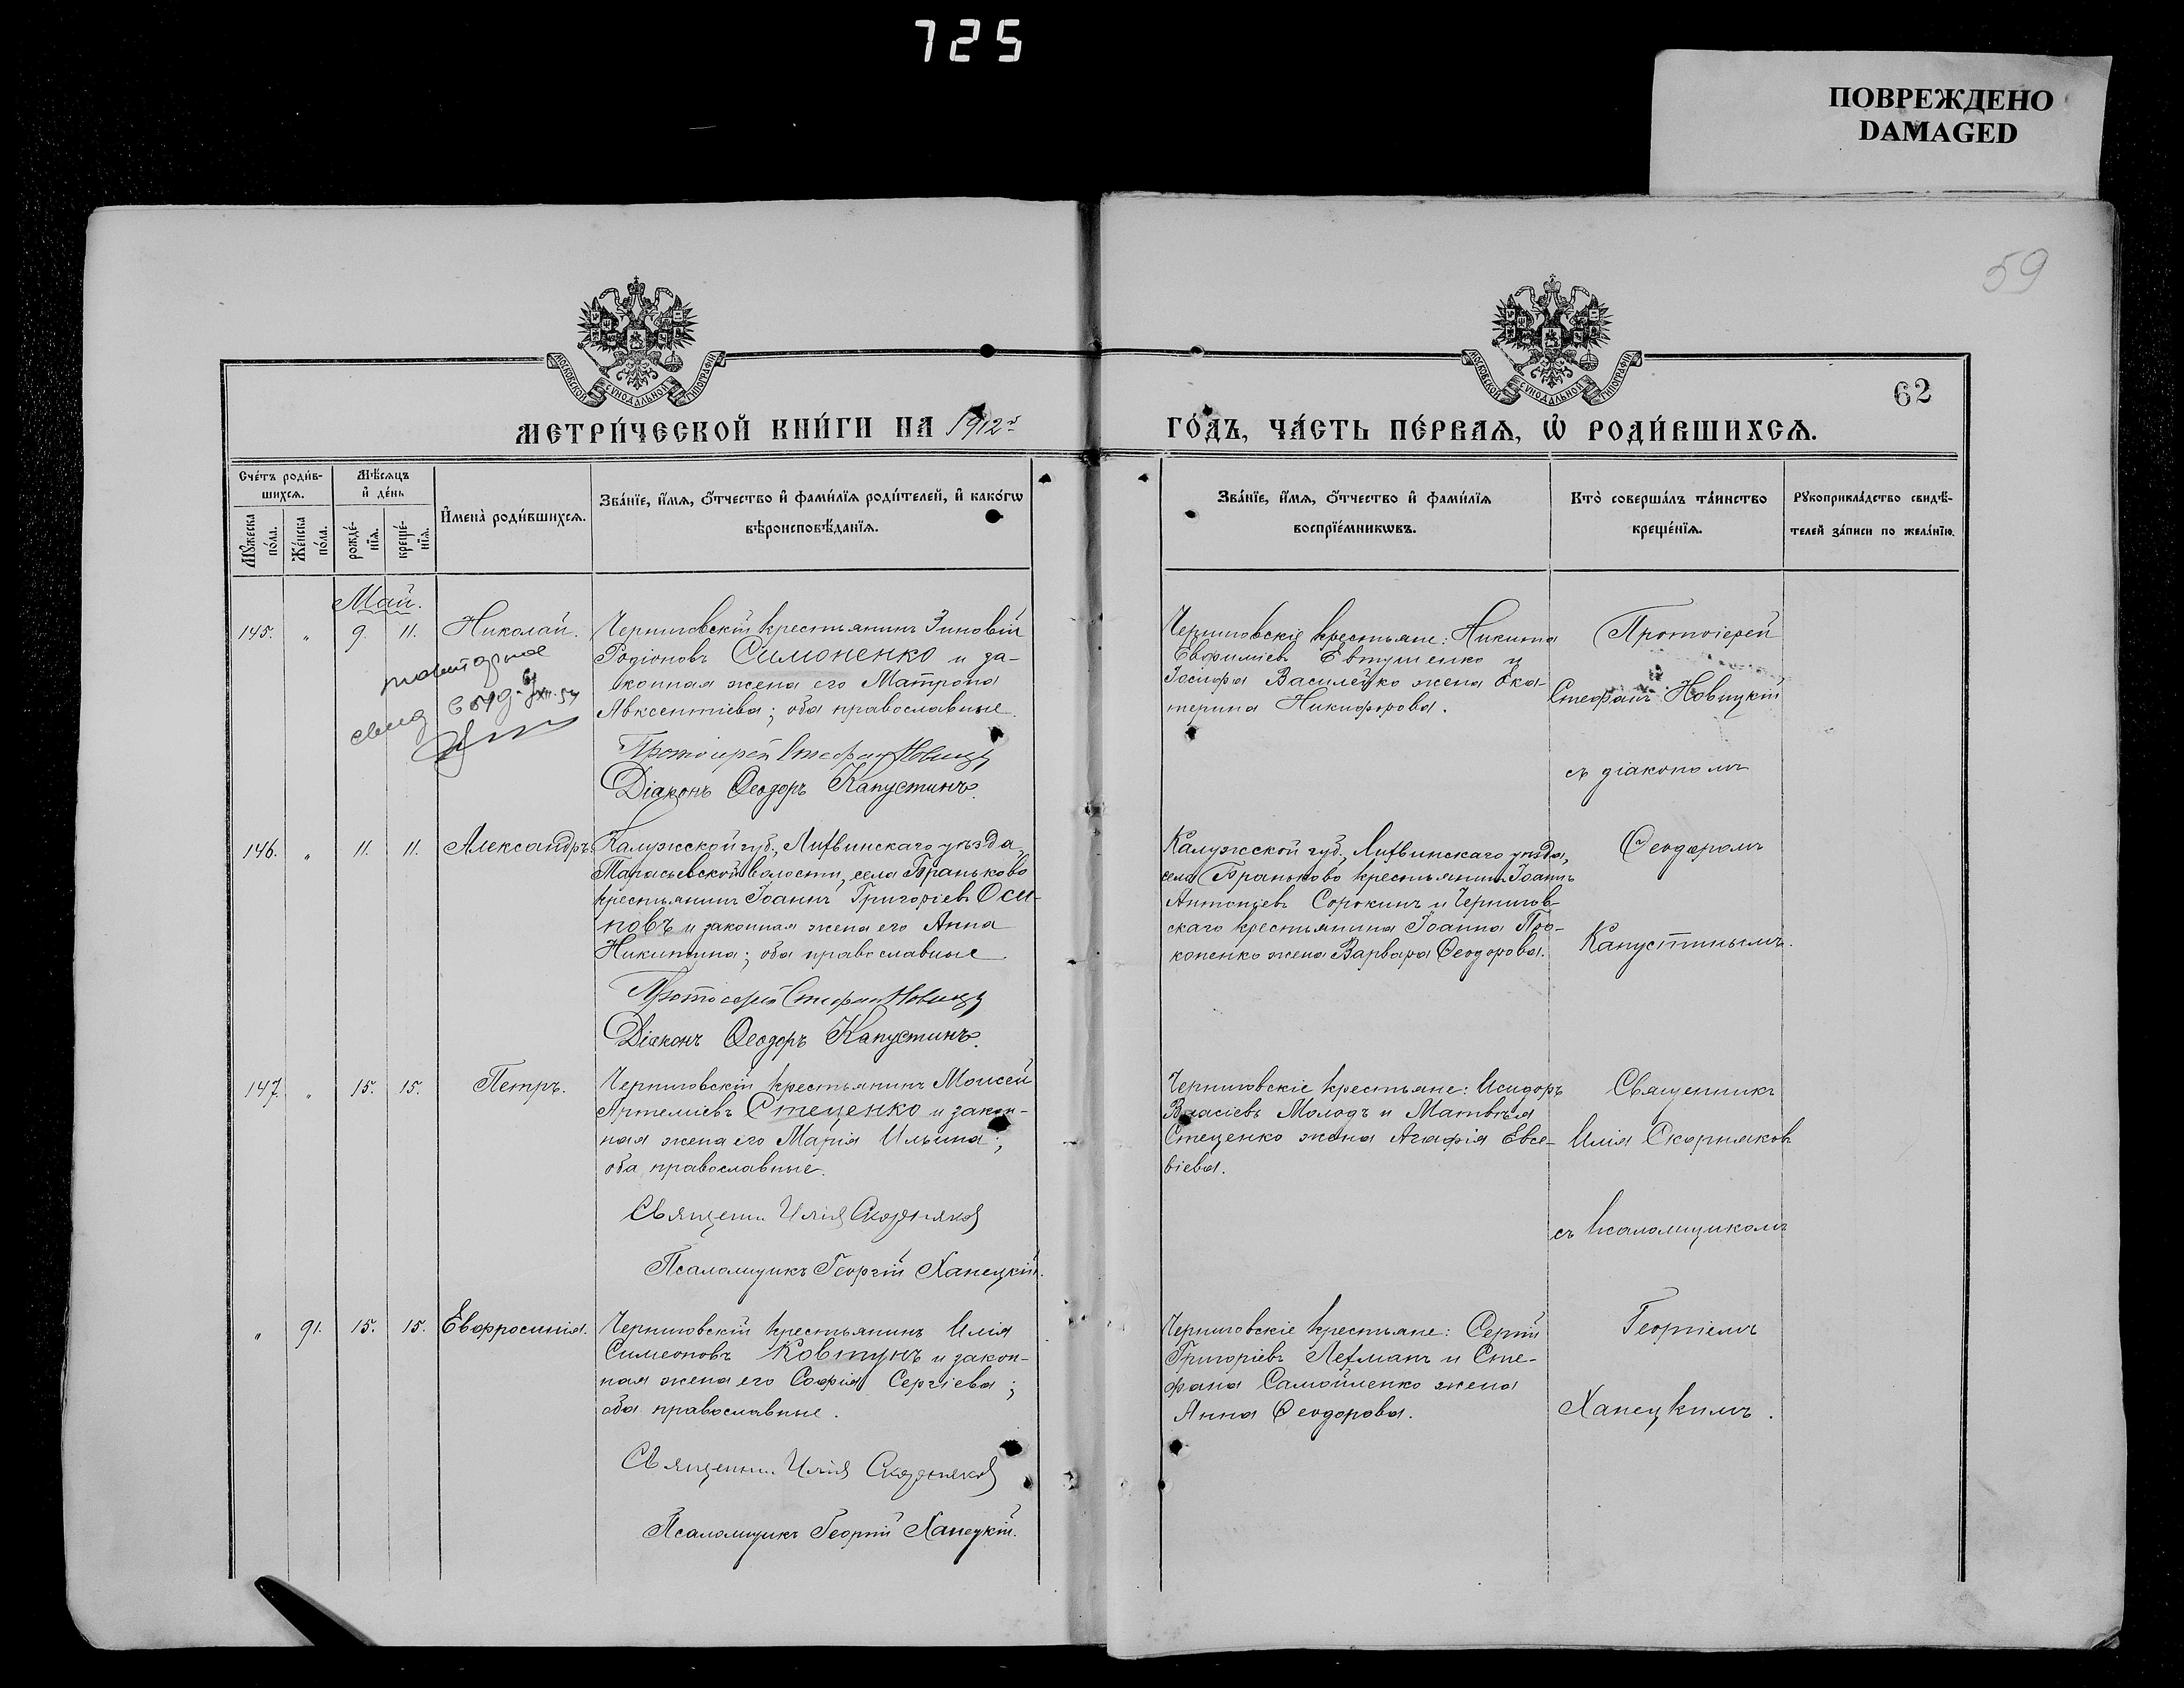 725
ПОВРЕЖДЕНО
DAMAGED
59
62
МОСКОВСКОЙ СѴНОДАЛЬНОЙ ТИПОГРАФІИ
МОСКОВСКОЙ СѴНОДАЛЬНОЙ ТИПОГРАФІИ
МЕТРИ́ЧЕСКОЙ КНИ́ГИ НА 1912 г.
ГО́ДЪ, ЧА́СТЬ ПЕ́РВАѦ, Ѡ҆ РОДИ́ВШИХСѦ.
Сче́тъ роди́в-
шихсѧ.
Мꙋ́жеска по́ла.
Же́нска по́ла.
Мѣ́сѧцъ
и҆ де́нь
рожде́-
нїѧ.
креще́-
нїѧ.
И҆мена̀ роди́вшихсѧ.
Зва́нїе, и҆́мѧ, ѻ҆́тчество и҆ фами́лїѧ роди́телей, и҆ како́гѡ
вѣроисповѣ́данїѧ.
Зва́нїе, и҆́мѧ, ѻ҆́тчество и҆ фами́лїѧ
воспрїе́мникѡвъ.
Кто̀ соверша́лъ та́инство
креще́нїѧ.
Рꙋкоприкла́дство свидѣ́-
телей за́писи по жела́нїю.
Май.
145. " 9. 11. Николай.
Черниговскій крестьянинъ Зиновій
Родіоновъ Симоненко и за-
конная жена его Матрона
Авксентіева; оба православные.
Протоіерей Стефан Новицк
Діаконъ Ѳеодоръ Капустинъ.
Черниговскіе крестьяне: Никита
Евфиміевъ Евтушенко и
Іосифа Василейко жена Ека-
терина Никифорова.
Протоіерей
Стефанъ Новицкій
съ діакономъ
повторное
свид
146. " 11. 11. Александръ.
Калужской губ., Лихвинскаго уѣзда,
волости, села Браньково
крестьянинъ Іоаннъ Григоріевъ Оси-
повъ и законная жена его Анна
Никитина; оба православные.
Протоіерей Стефан Новицк
Діаконъ Ѳеодоръ Капустинъ.
Калужской губ., Лихвинскаго уѣзда,
села Браньково крестьянинъ Іоаннъ
Антоніевъ Сорокинъ и Чернигов-
скаго крестьянина Іоанна Про-
копенко жена Варвара Ѳеодорова.
Ѳеодоромъ
Капустинымъ.
147. " 15. 15. Петръ.
Черниговскій крестьянинъ Моисей
Артеміевъ Стеценко и закон-
ная жена его Марія Ильина;
оба православные.
Священн. Илія Скорняков
Псаломщикъ Георгій Ханецкій.
Черниговскіе крестьяне: Исидоръ
Власіевъ Молодъ и Матвѣя
Стеценко жена Агафія Евсе-
віева.
Священникъ
Илія Скорняковъ
съ псаломщикомъ
" 91. 15. 15. Евфросинія.
Черниговскій крестьянинъ Илія
Симеоновъ Ковтунъ и закон-
ная жена его Софія Сергіева;
оба православные.
Священн. Илія Скорняков
Псаломщикъ Георгій Ханецкій.
Черниговскіе крестьяне: Сергій
Григоріевъ Лехманъ и Сте-
фана Самойленко жена
Анна Ѳеодорова.
Георгіемъ
Ханецкимъ.